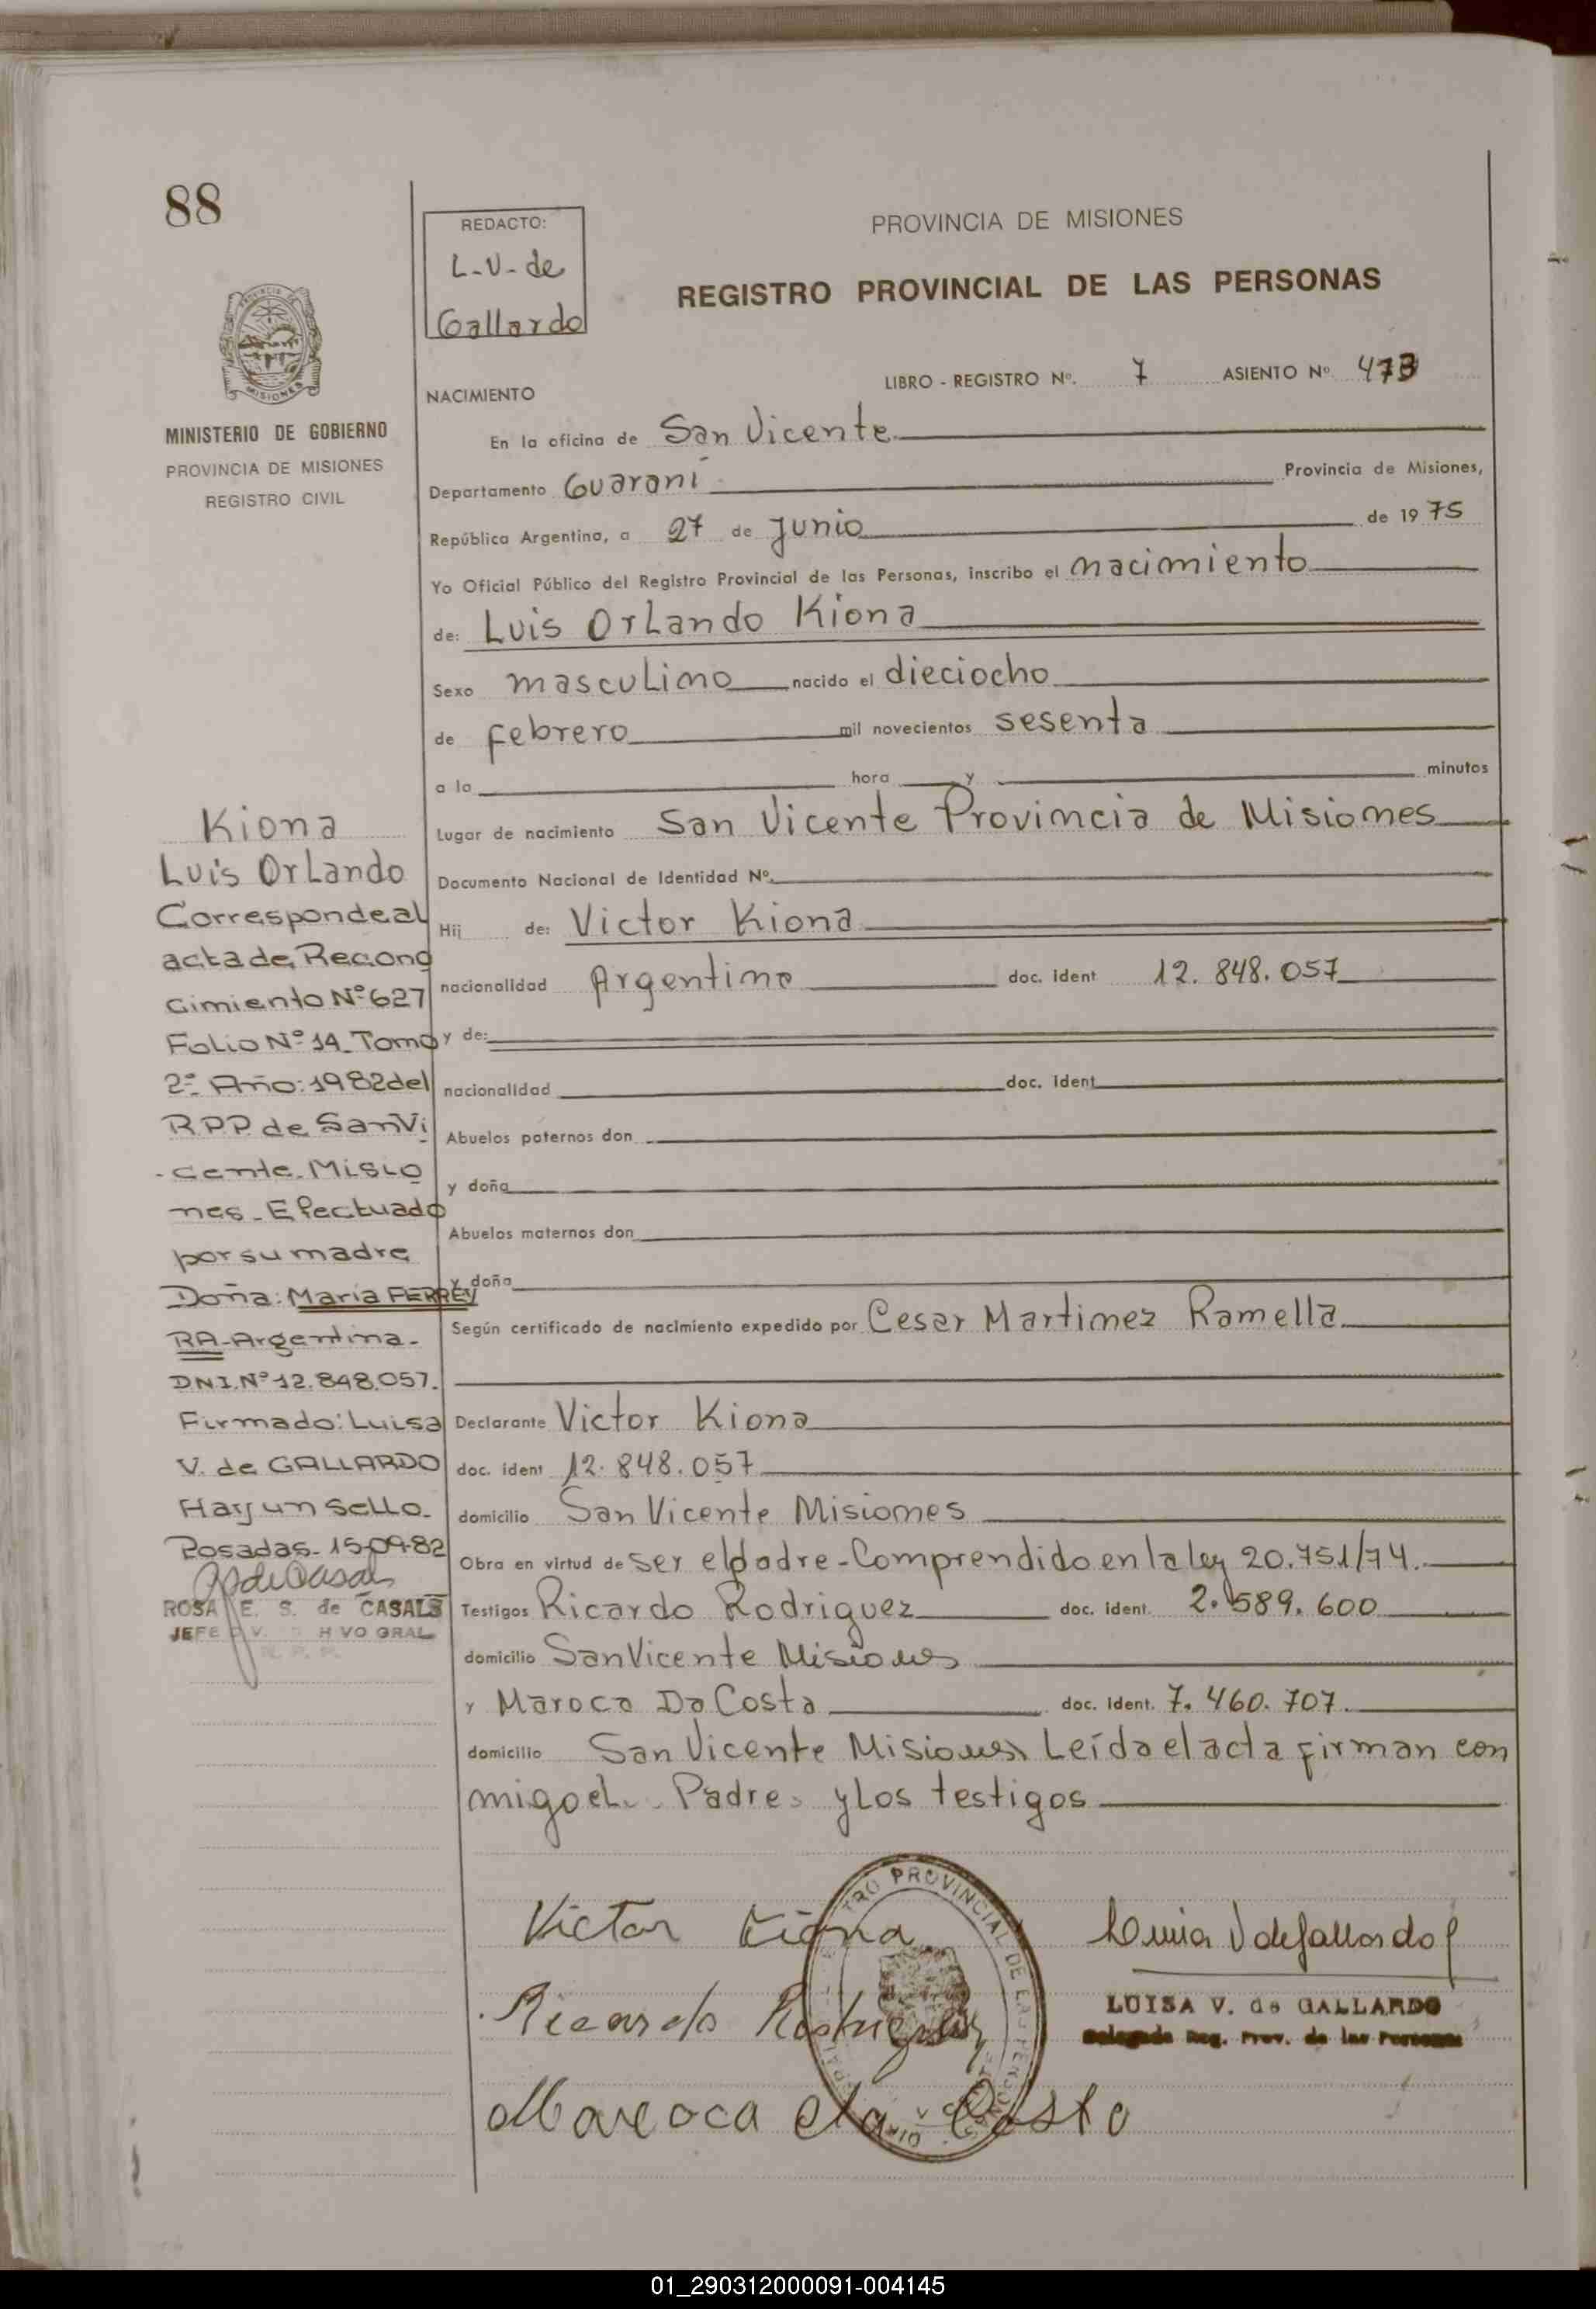 88
REDACTO:
L-V-de
Gallardo
PROVINCIA DE MISIONES
REGISTRO PROVINCIAL DE LAS PERSONAS
MINISTERIO DE GOBIERNO
PROVINCIA DE MISIONES
REGISTRO CIVIL
LIBRO - REGISTRO Nº. 7 ASIENTO Nº 473
NACIMIENTO
En la oficina de San Vicente
Departamento Guaraní Provincia de Misiones,
República Argentina, a 27 de Junio de 1975
Yo Oficial Público del Registro Provincial de las Personas, inscribo el nacimiento
de: Luis Orlando Kiona
Sexo masculino nacido el dieciocho
de febrero mil novecientos sesenta
a la hora y minutos
Lugar de nacimiento San Vicente Provincia de Misiones
Documento Nacional de Identidad Nº.
Hij de: Victor Kiona
nacionalidad Argentino doc. ident 12.848.057
y de:
nacionalidad doc. ident
Abuelos paternos don
y doña
Abuelos maternos don
y doña
Según certificado de nacimiento expedido por Cesar Martinez Ramella
Declarante Victor Kiona
doc. ident 12.848.057
domicilio San Vicente Misiones
Obra en virtud de ser el padre-Comprendido en la ley 20.751/74.
Testigos Ricardo Rodriguez doc. ident. 2.589.600
domicilio San Vicente Misiones
y Maroca Da Costa doc. ident. 7.460.707.
domicilio San Vicente Misiones Leída el acta firman con
migo el Padre y Los testigos
Kiona
Luis Orlando
Corresponde al
acta de Recono
cimiento Nº 627
Folio Nº 14_Tomo
2º_Año:1982 del
R.P.P. de San Vi
-cente_Misio
nes_Efectuado
por su madre
Doña: María FERREY
RA-Argentina-
DNI.Nº 12.848.057.
Firmado: Luisa
V. de GALLARDO
Hay un Sello_
Posadas_15-09-82
ROSA E. S. de CASALS
JEFE
Victor Kiona
Luisa V de Gallardo
Ricardo Rodriguez
LUISA V. de GALLARDO
Delegada Reg. Prov. de las Personas
Maroca da Costa
01_290312000091-004145